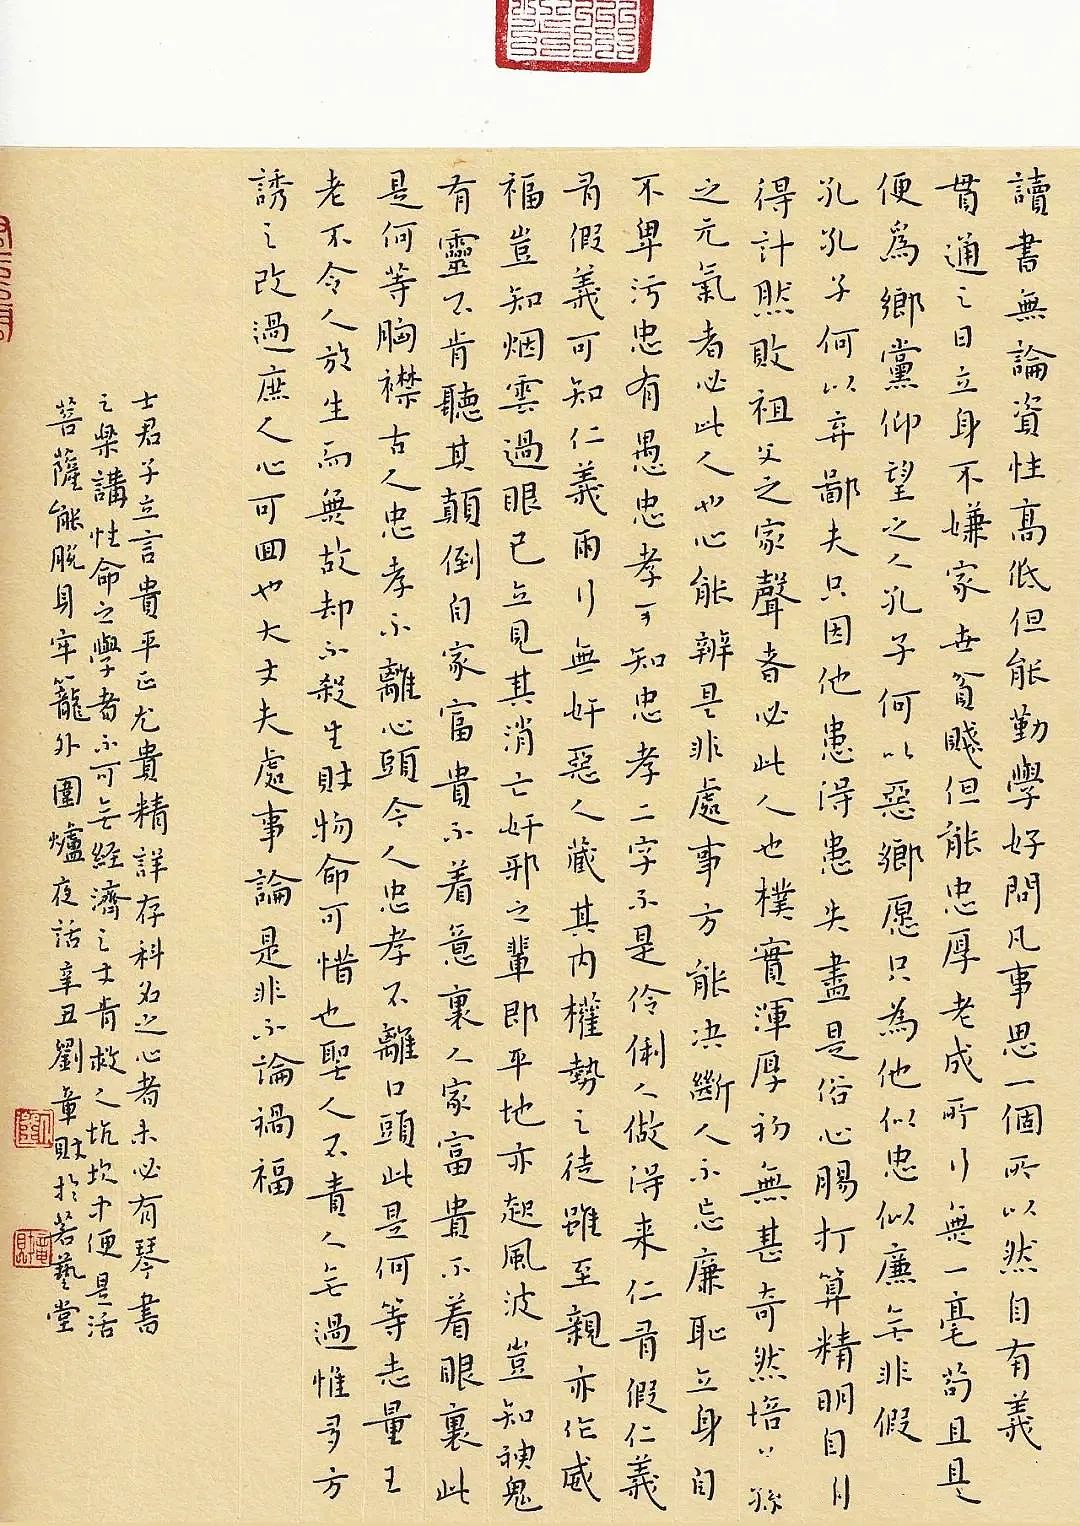 讀書無論資性高低但能勤學好問凡事思一個所以然自有義
貫通之日立身不嫌家世貧賤但能忠厚老成所行無一毫苟且是
便爲鄉黨仰望之人孔子何以惡鄉愿只為他似忠似廉無非假
孔孔子何以弃鄙夫只因他患得患失盡是俗心腸打算精明自身
得計然敗祖父之家聲者必此人也樸實渾厚初無甚奇然培以孫
之元氣者必此人也心能辨是非處事方能决斷人不忘廉恥立身自
不卑污忠有愚忠孝可知忠孝二字不是伶俐人做得来仁有假仁義
有假義可知仁義兩行無奸惡人藏其内權勢之徒雖至親亦作威
福豈知烟雲過眼已立見其消亡奸邪之輩即平地亦起風波豈知神鬼
有靈不肯聽其顛倒自家富貴不着意裏人家富貴不着眼裏此
是何等胸襟古人忠孝不離心頭今人忠孝不離口頭此是何等志量王
老不令人放生而無故却不殺生財物命可惜也聖人不責人無過惟多方
誘之改過庶人心可回也大丈夫處事論是非不論禍福
士君子立言貴平正尤貴精詳存科名之心者未必有琴書
之樂講性命之學者不可無经濟之才肯救人坑坎中便是活
菩薩能脫身牢籠外圍爐夜話辛丑劉章財於若藝堂